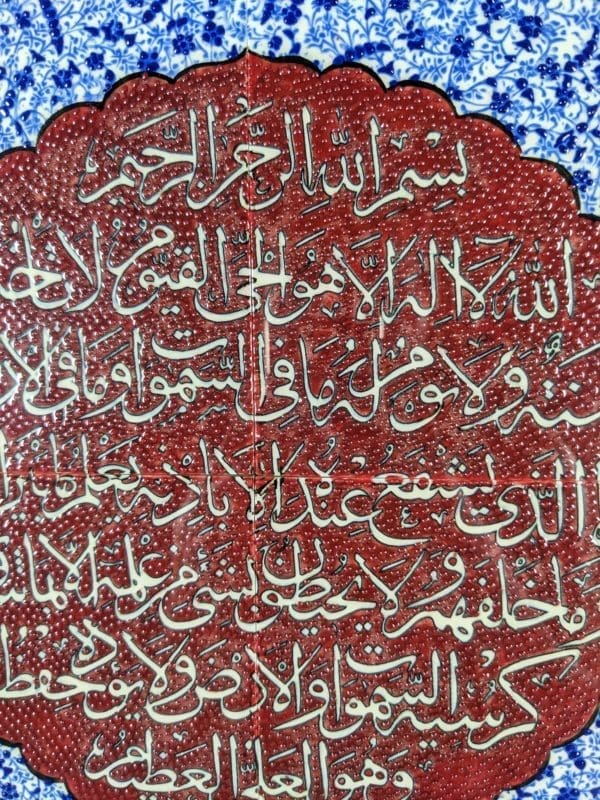 بسم الله الرحمن الرحيم
الله لا اله الا هو الحي القيوم لا تاخذ
سنة ولا نوم له ما في السموات وما في الار
الذي يشفع عنده الا باذنه يعلم ما
ما خلفهم ولا يحيطون بشئ من علمه الا بما
كرسيه السموات والارض ولا يؤده حفظ
وهو العلي العظيم